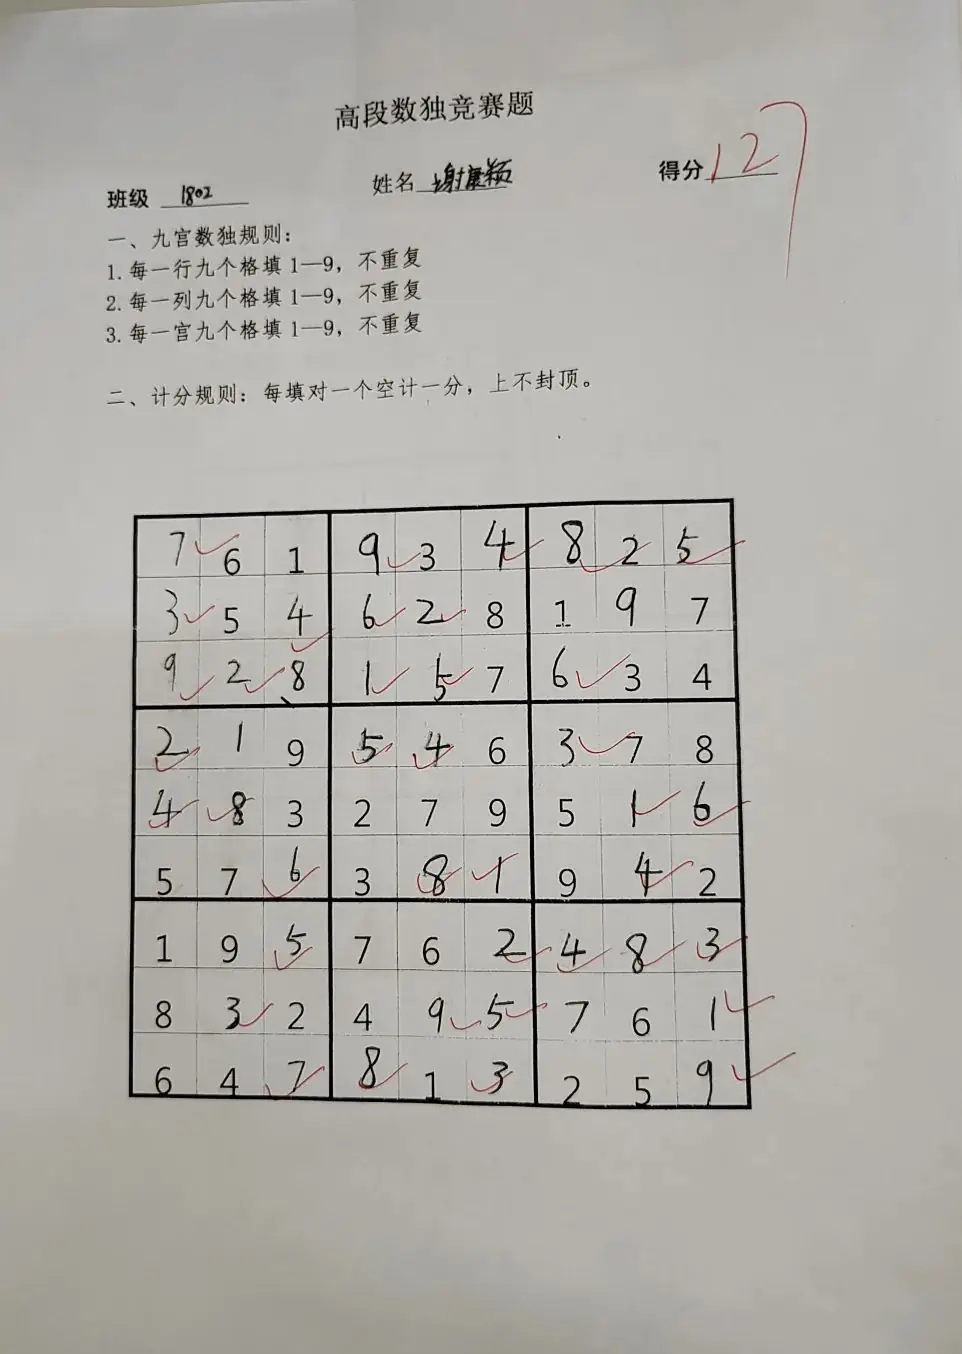 高段数独竞赛题
班级 1802 姓名 谢康颖 得分 127
一、九宫数独规则：
1.每一行九个格填1—9，不重复
2.每一列九个格填1—9，不重复
3.每一宫九个格填1—9，不重复
二、计分规则：每填对一个空计一分，上不封顶。
7 6 1 9 3 4 8 2 5
3 5 4 6 2 8 1 9 7
9 2 8 1 5 7 6 3 4
2 1 9 5 4 6 3 7 8
4 8 3 2 7 9 5 1 6
5 7 6 3 8 1 9 4 2
1 9 5 7 6 2 4 8 3
8 3 2 4 9 5 7 6 1
6 4 7 8 1 3 2 5 9